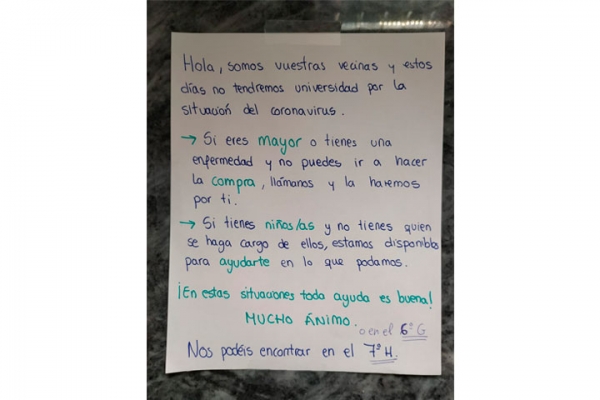 Hola, somos vuestras vecinas y estos
días no tendremos universidad por la
situación del coronavirus.
→ Si eres mayor o tienes una
enfermedad y no puedes ir a hacer
la compra, llámanos y la haremos
por ti.
→ Si tienes niños/as y no tienes quien
se haga cargo de ellos, estamos disponibles
para ayudarte en lo que podamos.
¡En estas situaciones toda ayuda es buena!
MUCHO ÁNIMO.
o en el 6º G
Nos podéis encontrar en el 7º H.